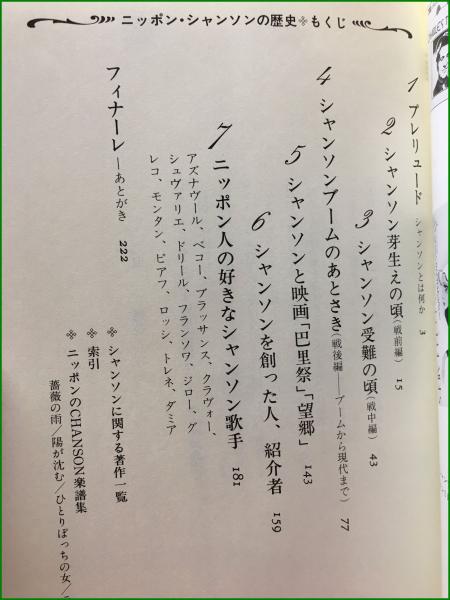 ニッポン・シャンソンの歴史❖もくじ
1 プレリュード シャンソンとは何か 3
2 シャンソン芽生えの頃(戦前編) 15
3 シャンソン受難の頃(戦中編) 43
4 シャンソンブームのあとさき(戦後編——ブームから現代まで) 77
5 シャンソンと映画「巴里祭」「望郷」 143
6 シャンソンを創った人、紹介者 159
7 ニッポン人の好きなシャンソン歌手 181
アズナヴール、ベコー、ブラッサンス、クラヴォー、
シュヴァリエ、ドリール、フランソワ、ジロー、グ
レコ、モンタン、ピアフ、ロッシ、トレネ、ダミア
フィナーレ—あとがき 222
❖ シャンソンに関する著作一覧
❖ 索引
❖ ニッポンのCHANSON楽譜集
薔薇の雨/陽が沈む/ひとりぼっちの女/